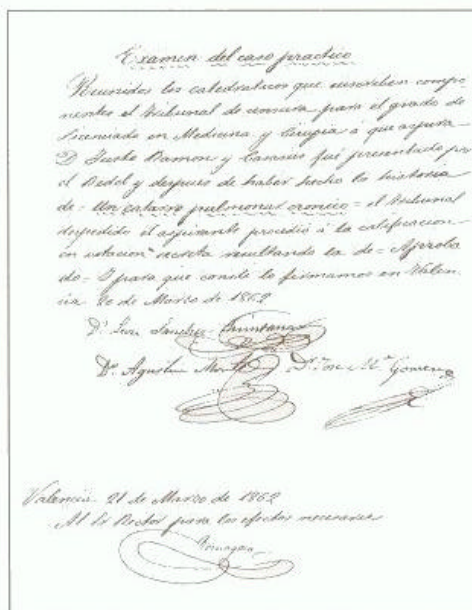 Examen del caso practico
Reunidos los catedraticos que suscriben compo
nentes el tribunal de censura para el grado de
Licenciado en Medicina y Cirugia á que aspira
D. Justo Ramon y fué presentado por
el Bedel y despues de haber hecho la historia
de = Un catarro pulmonar cronico = el tribunal
despedido el aspirante procedió á la calificacion
en votacion secreta resultando la de = Aproba
do = Y para que conste lo firmamos en Valen
cia 20 de Marzo de 1862
Dr. Leon Sanchez Quintanar
Dr. Agustin Dr. José Mª Gomez
Valencia 21 de Marzo de 1862
Al Sr Rector para los efectos necesarios